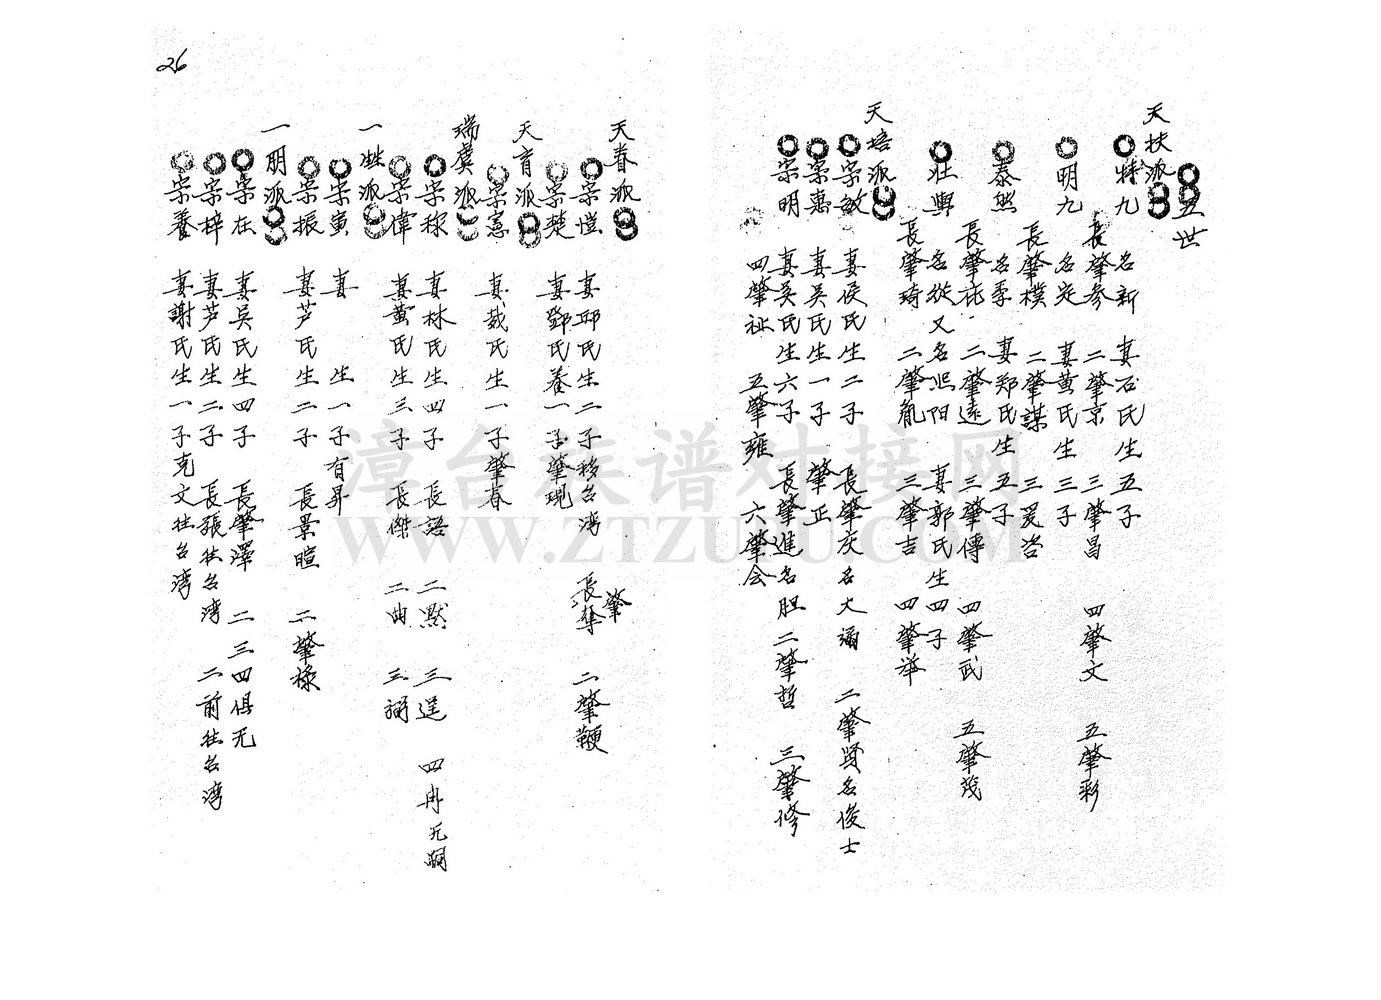 五世
天扶派
特九 名新 妻石氏生五子
長肇参 二肇京 三肇昌 四肇文 五肇彩
明九 名定 妻黄氏生三子
長肇樸 二肇謀 三爰咨
泰然 名季 妻郑氏生五子
長肇託 二肇遠 三肇傳 四肇武 五肇茂
壯興 名從又名熙阳 妻郭氏生四子
長肇琦 二肇胤 三肇吉 四肇举
天培派
宗敏 妻侯氏生二子 長肇庆名大涵 二肇贤名俊士
宗惠 妻吴氏生一子 肇正
宗明 妻吴氏生六子 長肇進名胆 二肇哲 三肇修
四肇祉 五肇雍 六肇会
26
天眷派
宗愷 妻邱氏生二子移台湾 長肇 二肇鞭
宗楚 妻鄧氏養一子肇現
天育派
宗憲 妻裁氏生一子肇春
瑞虞派
宗稼 妻林氏生四子 長語 二點 三逞 四冉无嗣
宗偉 妻黄氏生三子 長傑 二曲 三弼
一甡派
宗寅 妻 生一子有昇
宗振 妻芦氏生二子 長景暄 二肇禄
一朋派
宗在 妻吴氏生四子 長肇澤 二三四俱无
宗梓 妻芦氏生二子 長張往台湾 二前往台湾
宗養 妻謝氏生一子克文往台湾
漳台族谱对接网
WWW.ZTZUPU.COM